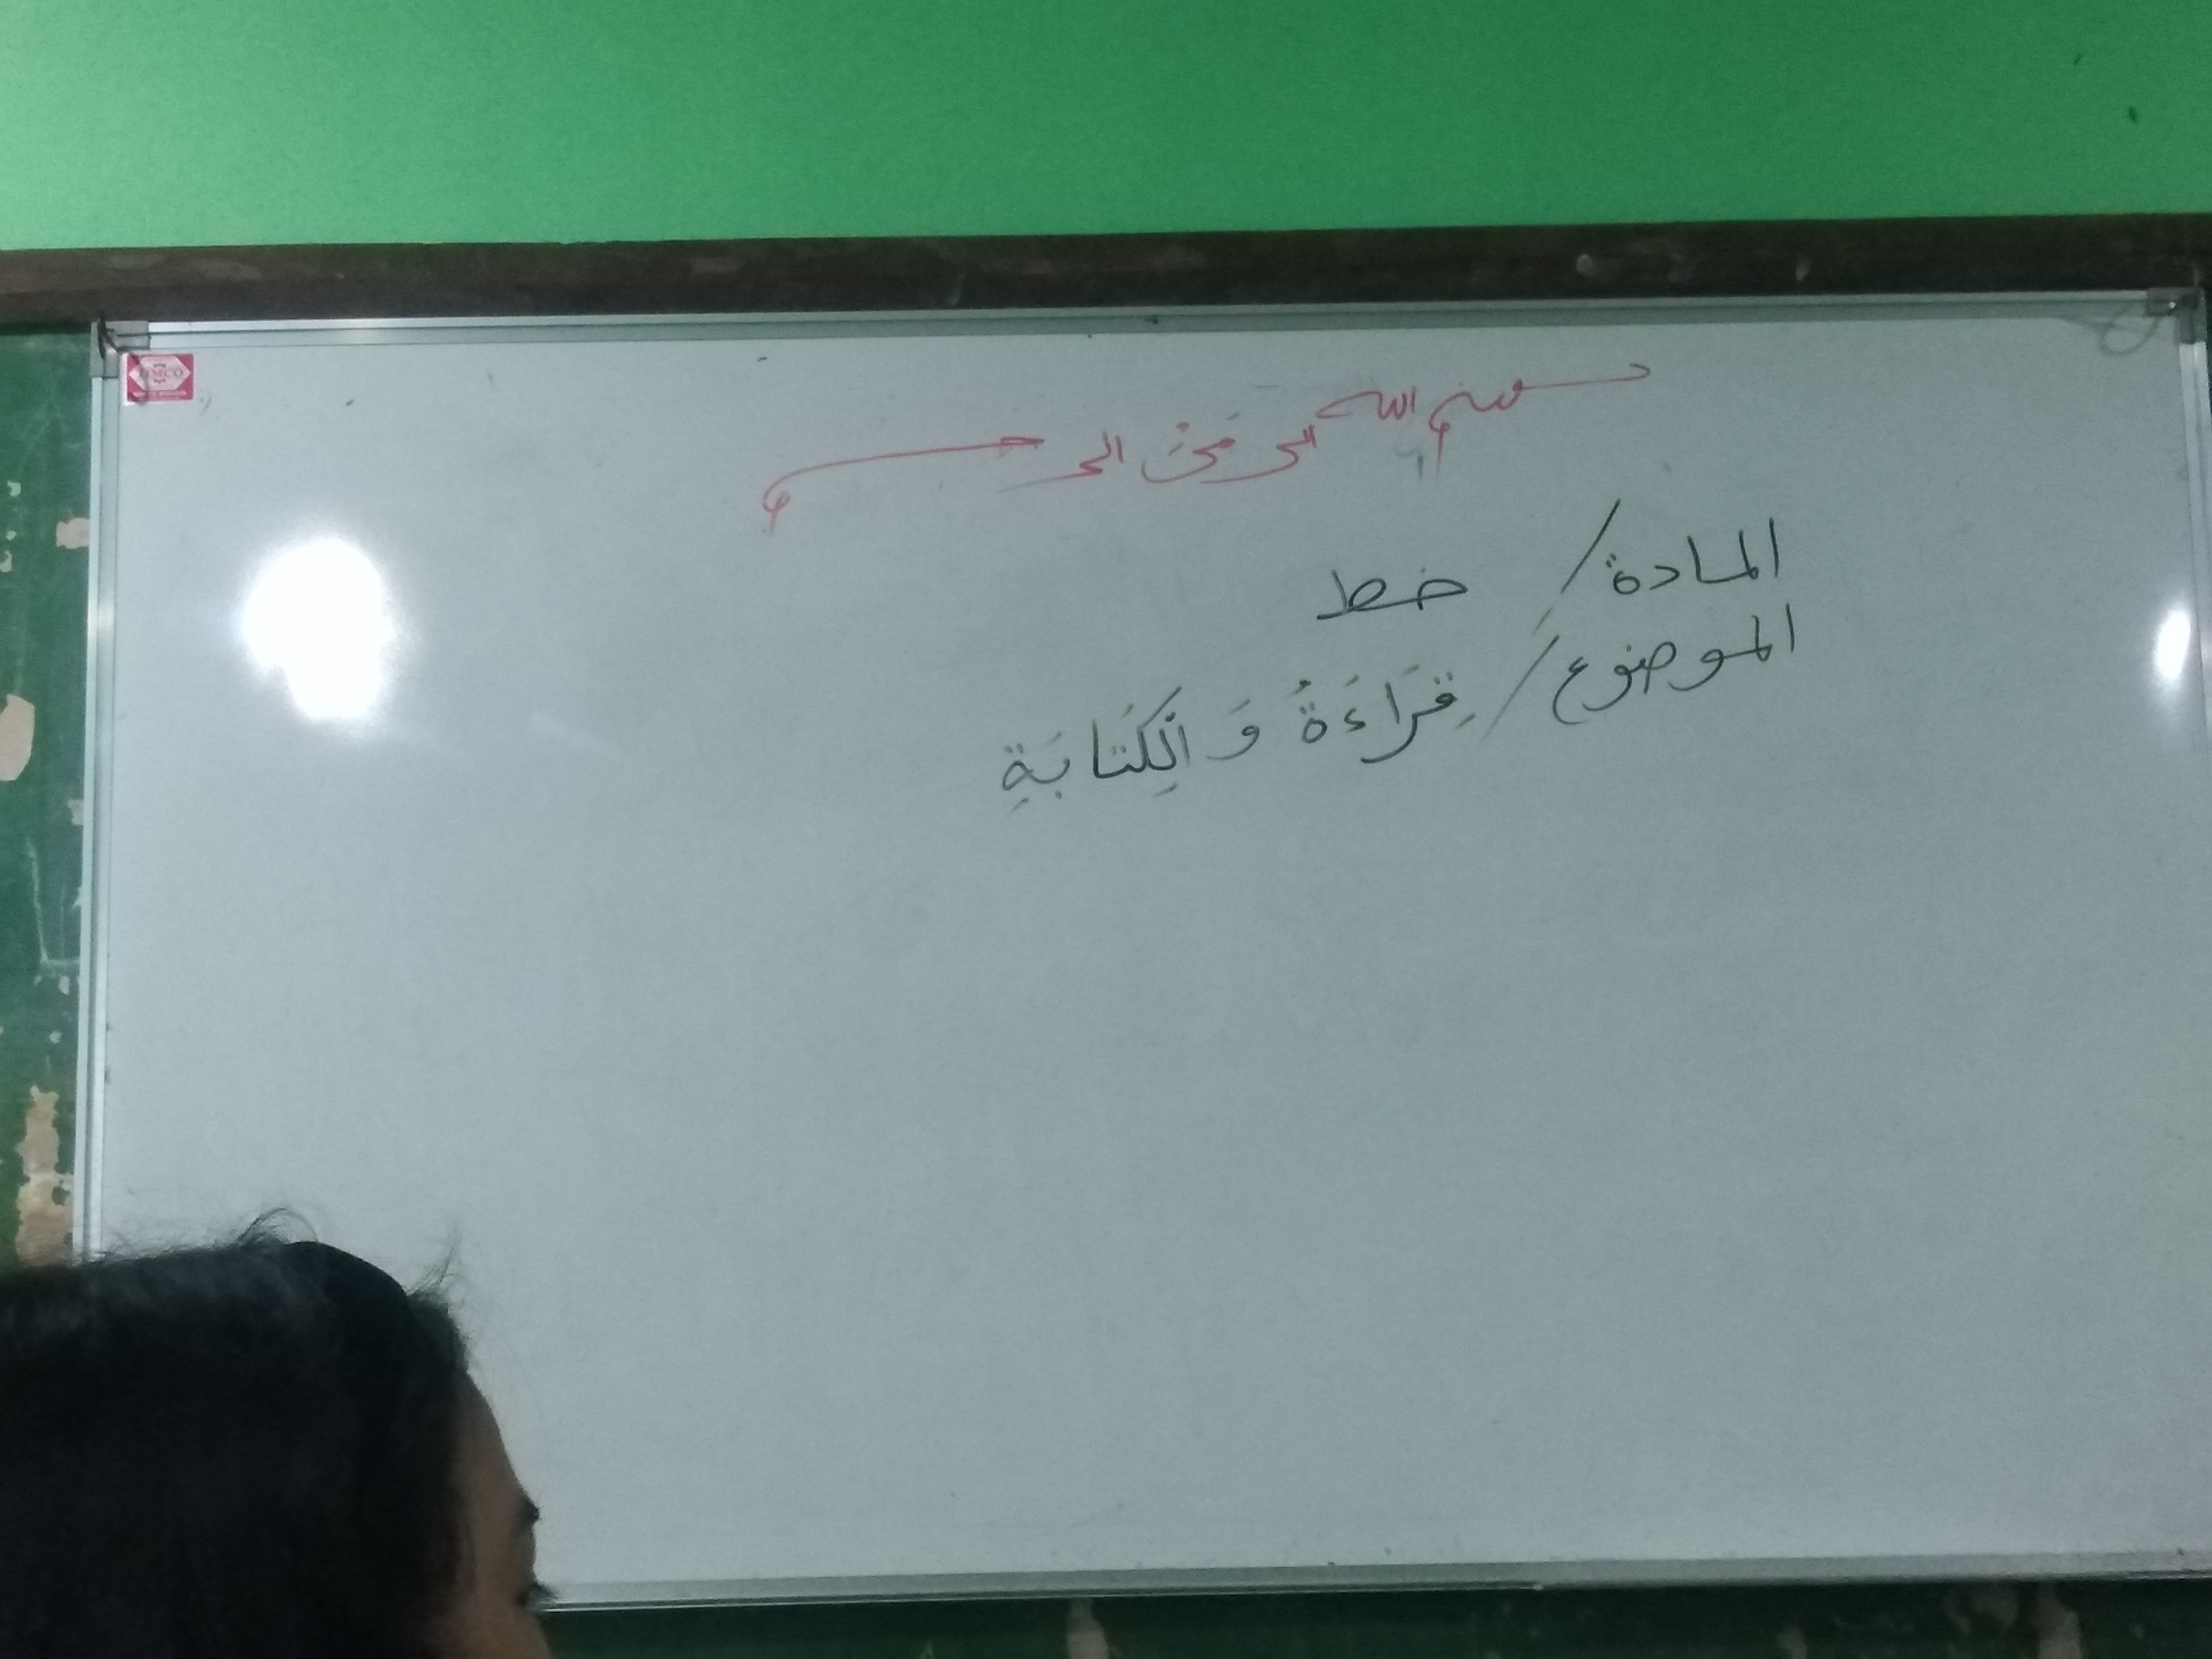 بسم الله الرحمن الرحيم
المادة / خط
الموضوع / قِرَاءَةُ وَ الْكِتَابَةِ